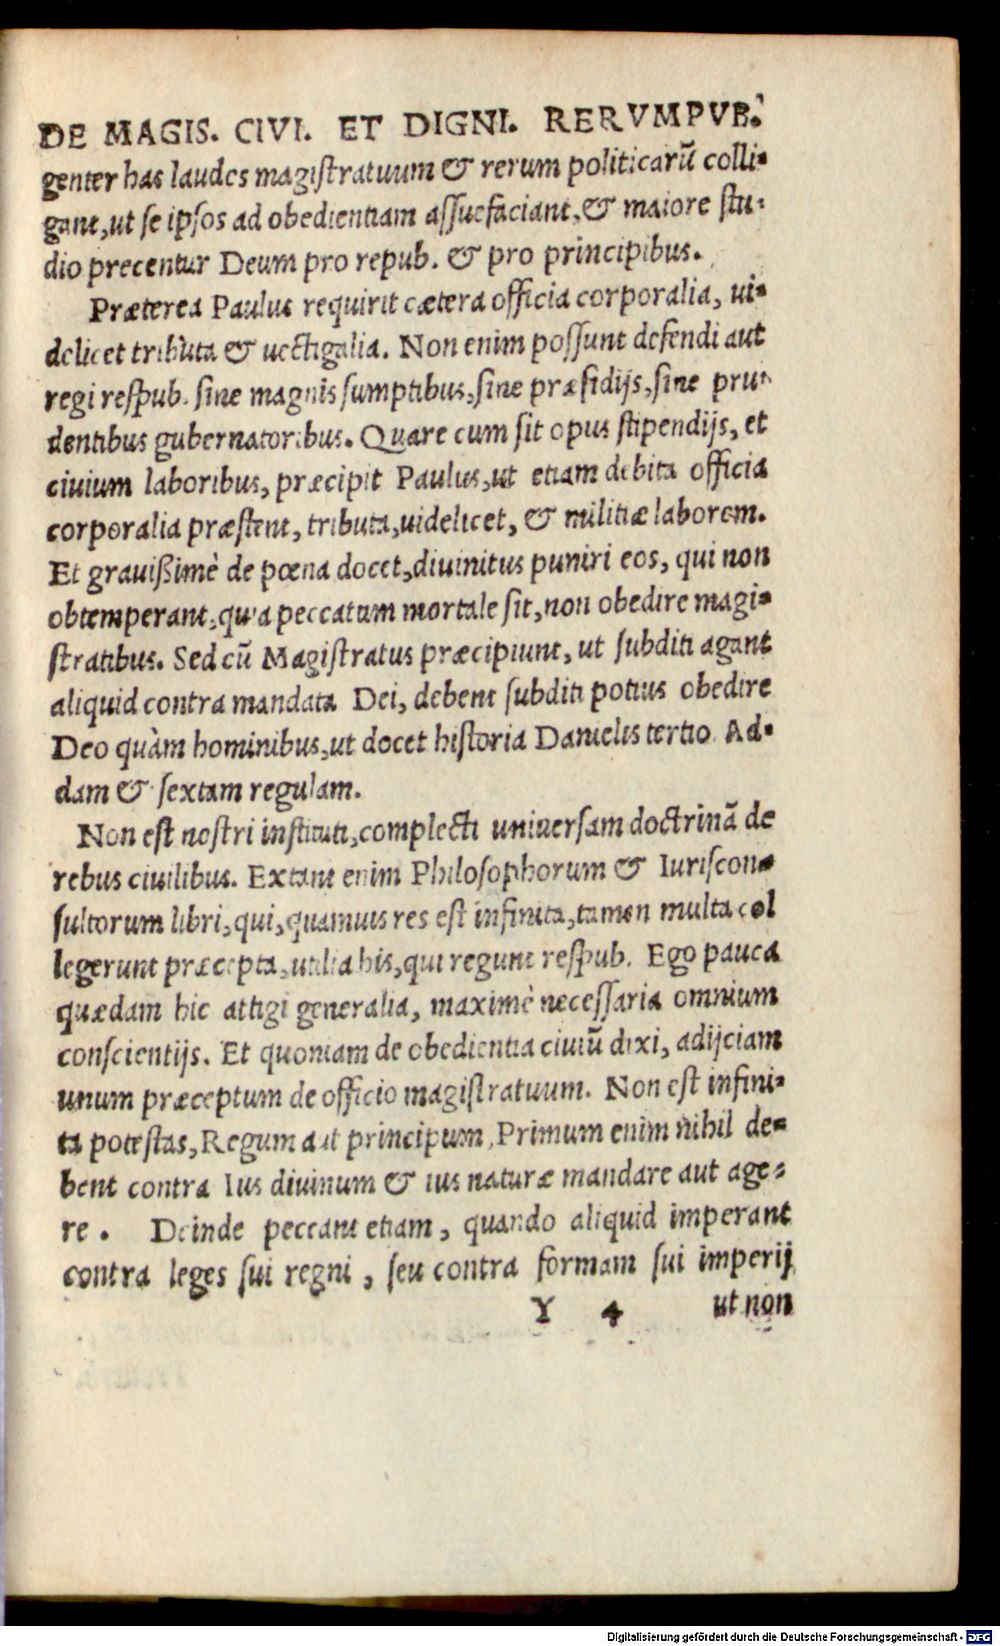 DE MAGIS. CIVI. ET DIGNI. RERVMPVB.
genter has laudes magistratuum & rerum politicarũ colli-
gant, ut se ipsos ad obedientiam assuefaciant, & maiore stu-
dio precentur Deum pro repub. & pro principibus.
Præterea Paulus requirit cætera officia corporalia, ui-
delicet tributa & uectigalia. Non enim possunt defendi aut
regi respub. sine magnis sumptibus, sine præsidijs, sine pru-
dentibus gubernatoribus. Quare cum sit opus stipendijs, et
ciuium laboribus, præcipit Paulus, ut etiam debita officia
corporalia præstent, tributa, uidelicet, & militiæ laborem.
Et grauißimè de pœna docet, diuinitus puniri eos, qui non
obtemperant, quia peccatum mortale sit, non obedire magi-
stratibus. Sed cũ Magistratus præcipiunt, ut subditi agant
aliquid contra mandata Dei, debent subditi potius obedire
Deo quàm hominibus, ut docet historia Danielis tertio. Ad-
dam & sextam regulam.
Non est nostri instituti, complecti uniuersam doctrinã de
rebus ciuilibus. Extant enim Philosophorum & Iuriscon-
sultorum libri, qui, quamuis res est infinita, tamen multa col
legerunt præcepta, utilia his, qui regunt respub. Ego pauca
quædam hic attigi generalia, maximè necessaria omnium
conscientijs. Et quoniam de obedientia ciuiũ dixi, adijciam
unum præceptum de officio magistratuum. Non est infini-
ta potestas, Regum aut principum, Primum enim nihil de-
bent contra Ius diuinum & ius naturæ mandare aut age-
re. Deinde peccant etiam, quando aliquid imperant
contra leges sui regni, seu contra formam sui imperij
Y 4 ut non
Digitalisierung gefördert durch die Deutsche Forschungsgemeinschaft - DFG